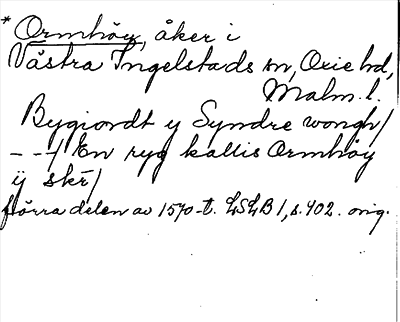 * Ormhöy, åker i
Västra Ingelstads sn, Oxie hd,
Malm. l.
Bygiordt y Syndre wongh/
- - -/ En ryg kallis Ormhöy
ÿ skr/
Förra delen av 1570-t. LSLB 1, s. 402. orig.